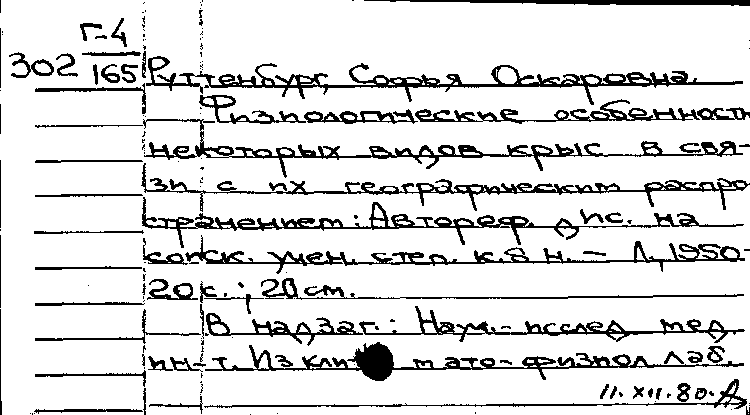 Г-4
302 165 Руттенбург, Софья Оскаровна.
Физиологические особенности
некоторых видов крыс в свя-
зи с их географическим распро
странением: Автореф. дис. на
соиск. учен. степ. к. б. н. – Л., 1950-
20 с.; 20 см.
В надзаг.: Науч.-исслед. мед.
ин-т. Из кли ато-физиол лаб.
11.XII.80.